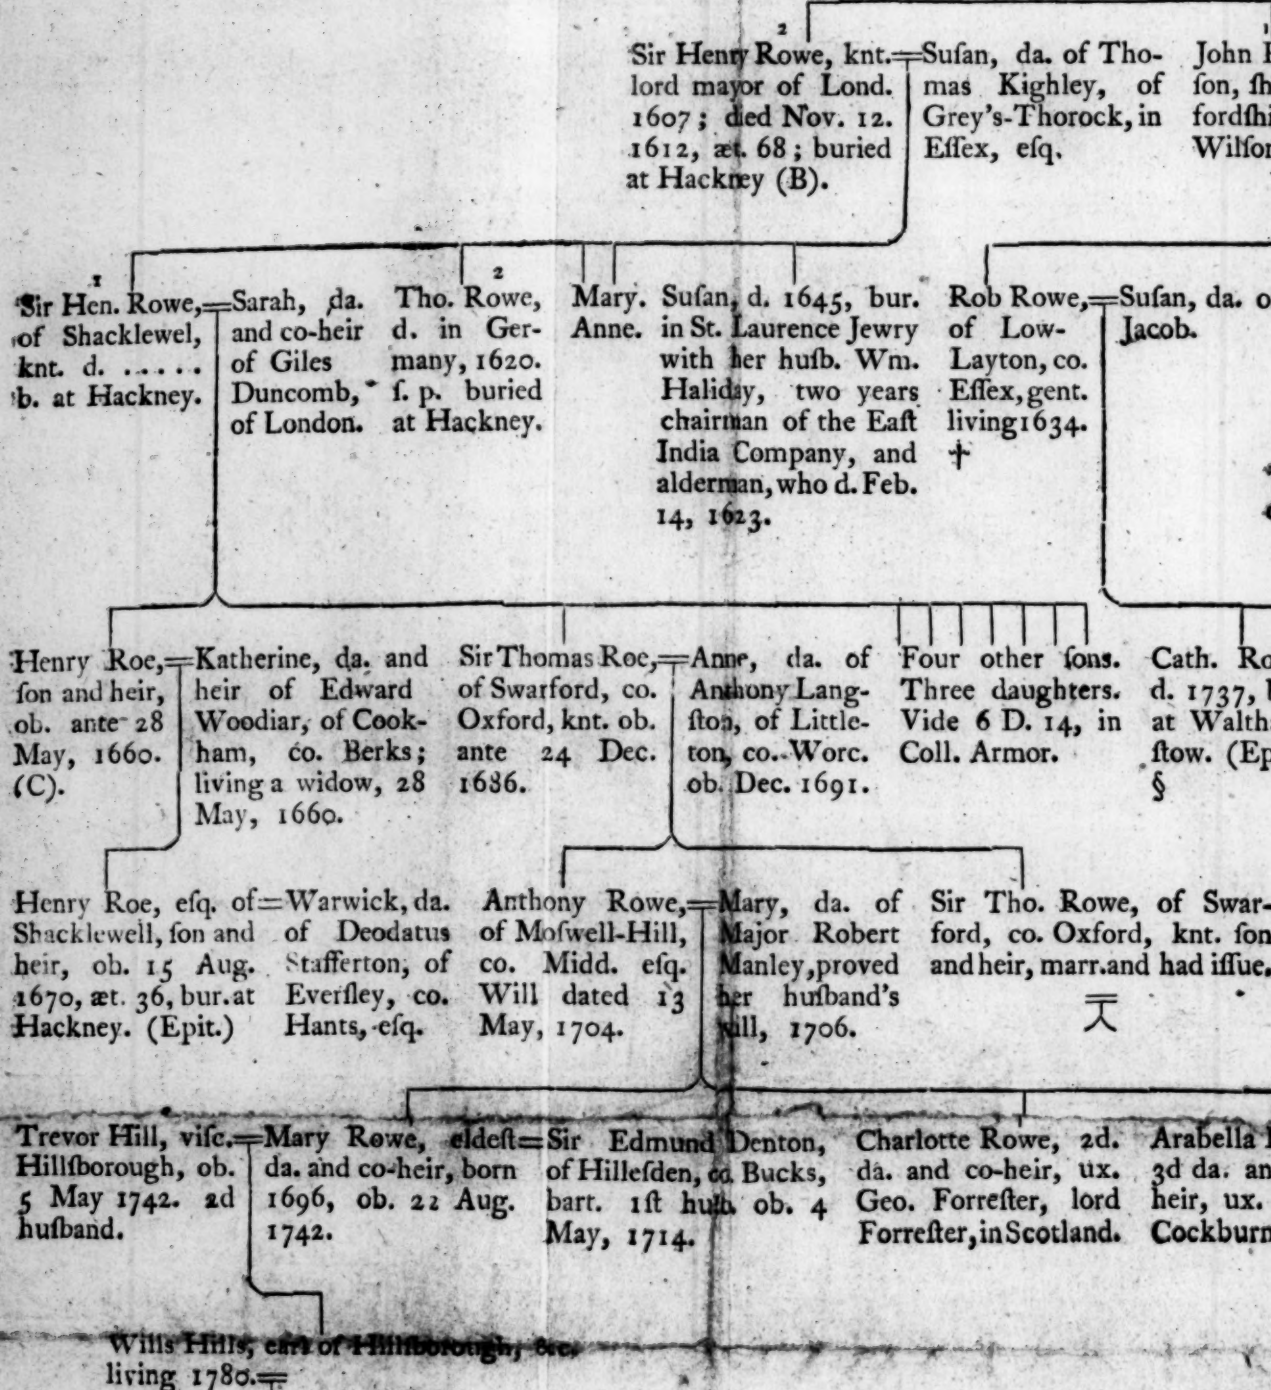 2
Sir Henry Rowe, knt.
lord mayor of Lond.
1607; died Nov. 12.
1612, æt. 68; buried
at Hackney (B).
Suſan, da. of Tho-
mas Kighley, of
Grey's-Thorock, in
Eſſex, eſq.
1
John
ſon, ſh
fordſhi
Wilſon
1
Sir Hen. Rowe,
of Shacklewel,
knt. d. ......
b. at Hackney.
Sarah, da.
and co-heir
of Giles
Duncomb,
of London.
2
Tho. Rowe,
d. in Ger-
many, 1620.
ſ. p. buried
at Hackney.
Mary.
Anne.
Suſan, d. 1645, bur.
in St. Laurence Jewry
with her huſb. Wm.
Haliday, two years
chairman of the Eaſt
India Company, and
alderman, who d. Feb.
14, 1623.
Rob Rowe,
of Low-
Layton, co.
Eſſex, gent.
living 1634.
†
Suſan, da. o
Jacob.
Henry Roe,
ſon and heir,
ob. ante 28
May, 1660.
(C).
Katherine, da. and
heir of Edward
Woodiar, of Cook-
ham, co. Berks;
living a widow, 28
May, 1660.
Sir Thomas Roe,
of Swarford, co.
Oxford, knt. ob.
ante 24 Dec.
1686.
Anne, da. of
Anthony Lang-
ſton, of Little-
ton, co. Worc.
ob. Dec. 1691.
Four other ſons.
Three daughters.
Vide 6 D. 14, in
Coll. Armor.
Cath. Ro
d. 1737, b
at Walth
ſtow. (Ep
§
Henry Roe, eſq. of
Shacklewell, ſon and
heir, ob. 15 Aug.
1670, æt. 36, bur. at
Hackney. (Epit.)
Warwick, da.
of Deodatus
Stafferton, of
Everſley, co.
Hants, eſq.
Anthony Rowe,
of Moſwell-Hill,
co. Midd. eſq.
Will dated 13
May, 1704.
Mary, da. of
Major Robert
Manley, proved
her huſband's
will, 1706.
Sir Tho. Rowe, of Swar-
ford, co. Oxford, knt. ſon
and heir, marr. and had iſſue.
Trevor Hill, viſc.
Hillſborough, ob.
5 May 1742. 2d
huſband.
Mary Rowe, eldeſt
da. and co-heir, born
1696, ob. 22 Aug.
1742.
Sir Edmund Denton,
of Hilleſden, co. Bucks,
bart. 1ſt huſb. ob. 4
May, 1714.
Charlotte Rowe, 2d.
da. and co-heir, ux.
Geo. Forreſter, lord
Forreſter, in Scotland.
Arabella
3d da. an
heir, ux.
Cockburn
Wills Hills, earl of Hillſborough, &c.
living 1780.